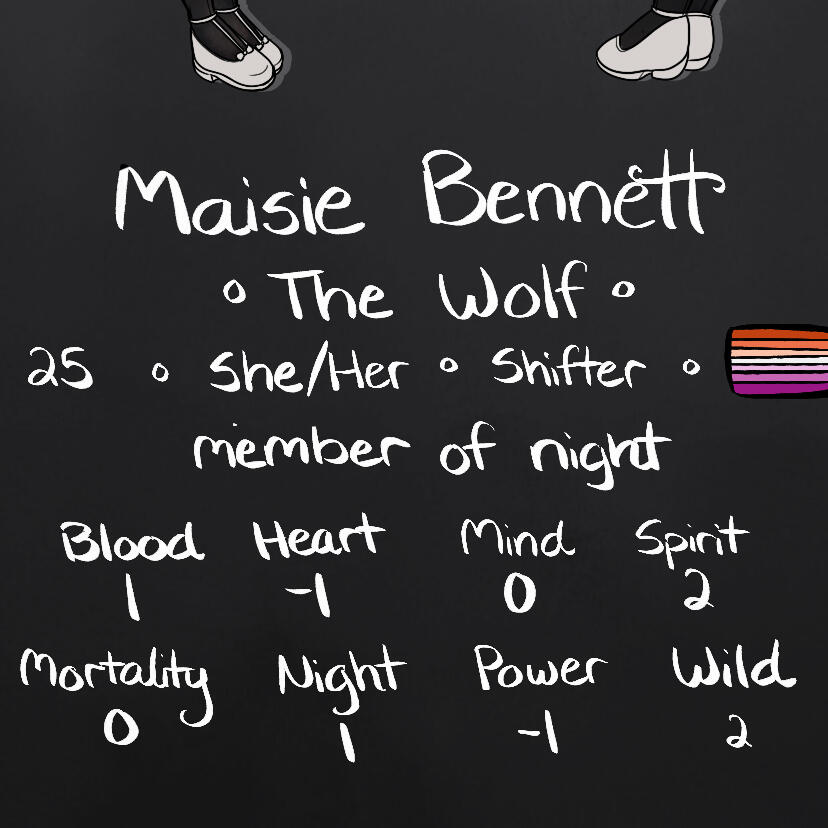 Maisie Bennett
° The Wolf °
25 ° She/Her ° Shifter °
member of night
Blood Heart Mind Spirit
1 -1 0 2
Mortality Night Power Wild
0 1 -1 2